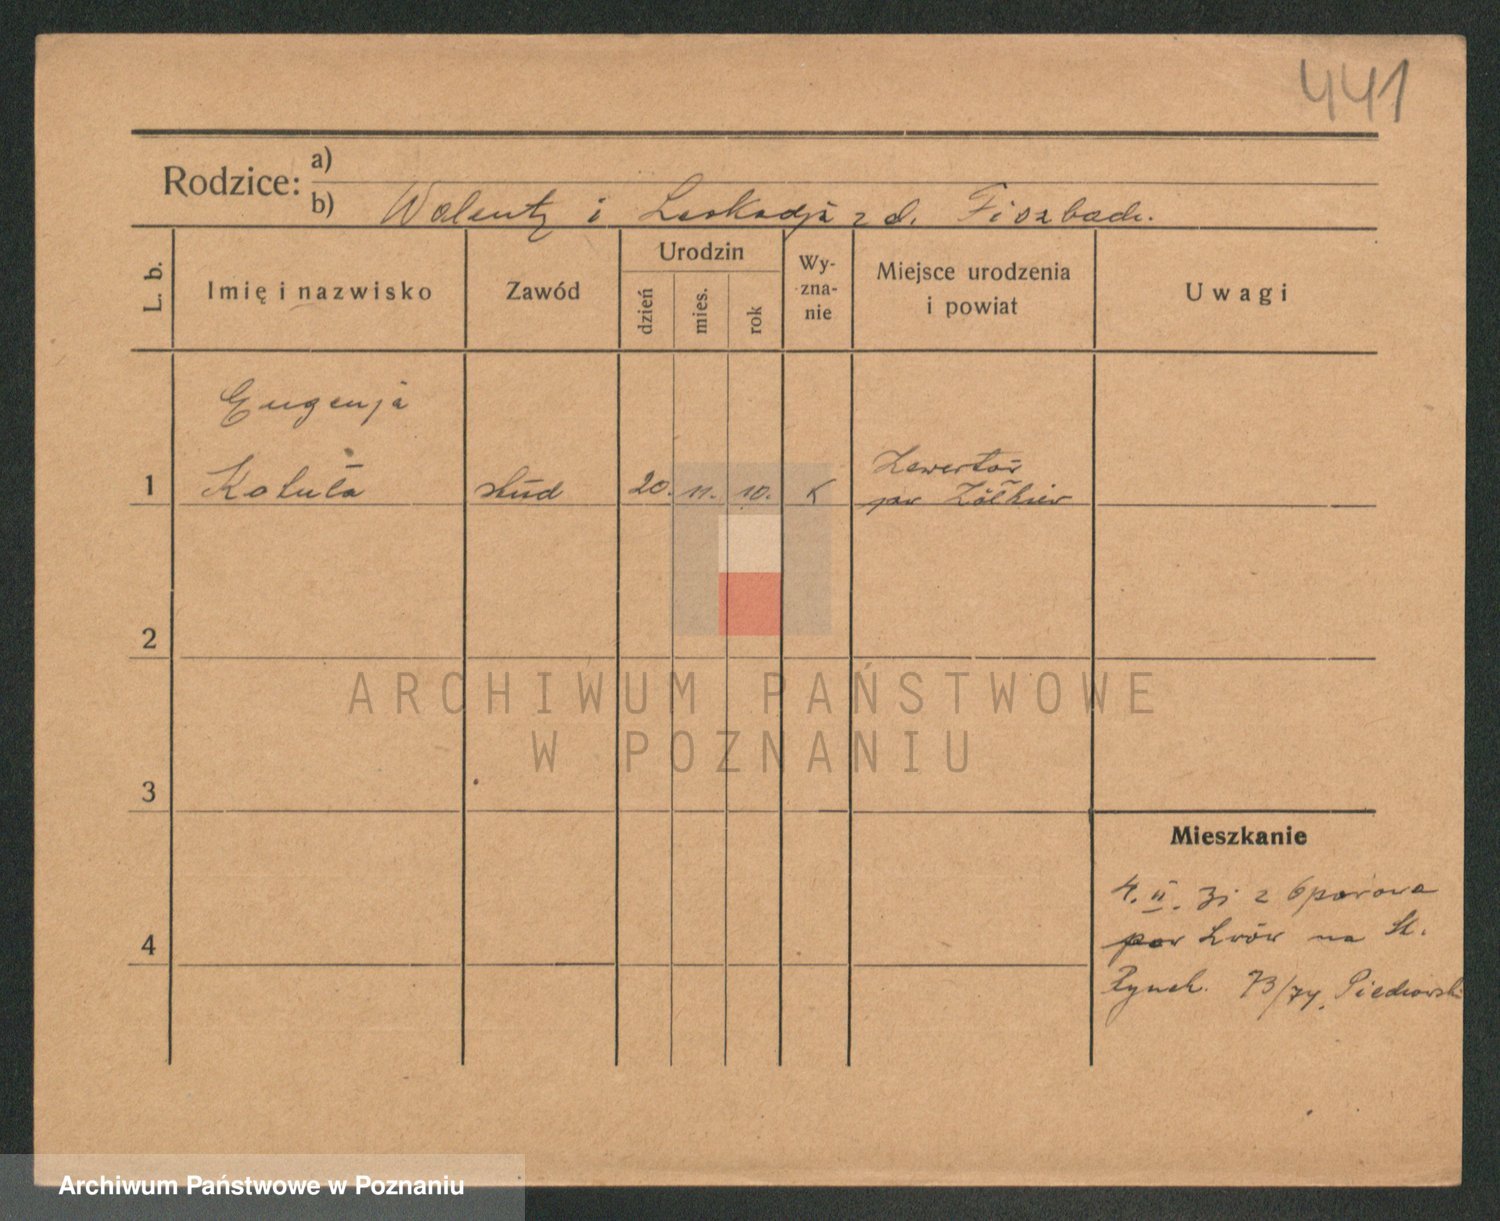 441
Rodzice: a)
b) Walenty i Leokadja z d. Fiszbach.
L. b. Imię i nazwisko Zawód Urodzin dzień mies. rok Wy- zna- nie Miejsce urodzenia i powiat Uwagi
Eugenja
1 Kokula stud 20. 11. 10. K
pow Żółkiew
2
3
Mieszkanie
4. II. 31 z
4 pow Lwów na St.
Rynek. 73/74.
ARCHIWUM PAŃSTWOWE
W POZNANIU
Archiwum Państwowe w Poznaniu